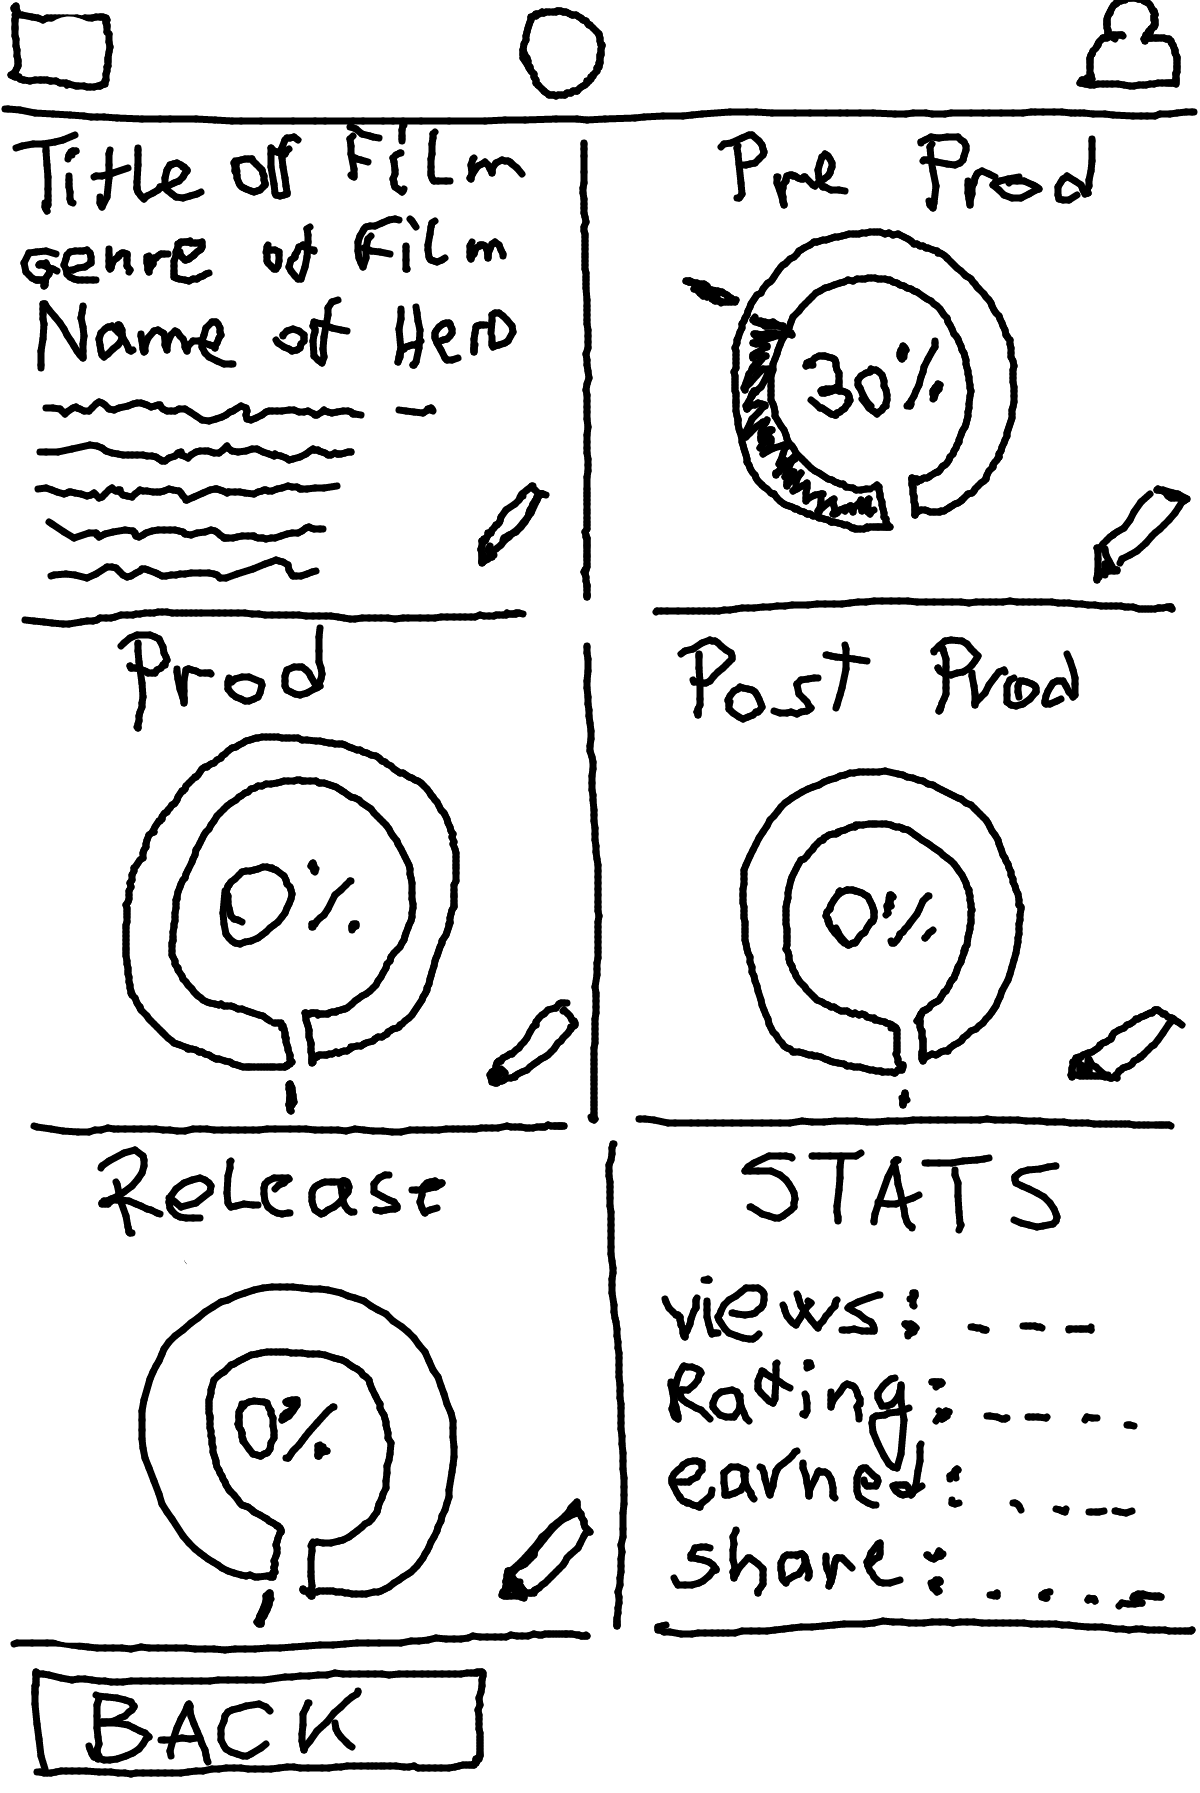 Title of Film
genre of Film
Name of Hero
Pre Prod
30%
Prod
0%
Post Prod
0%
Release
0%
STATS
views:
Rating:
earned:
share:
BACK